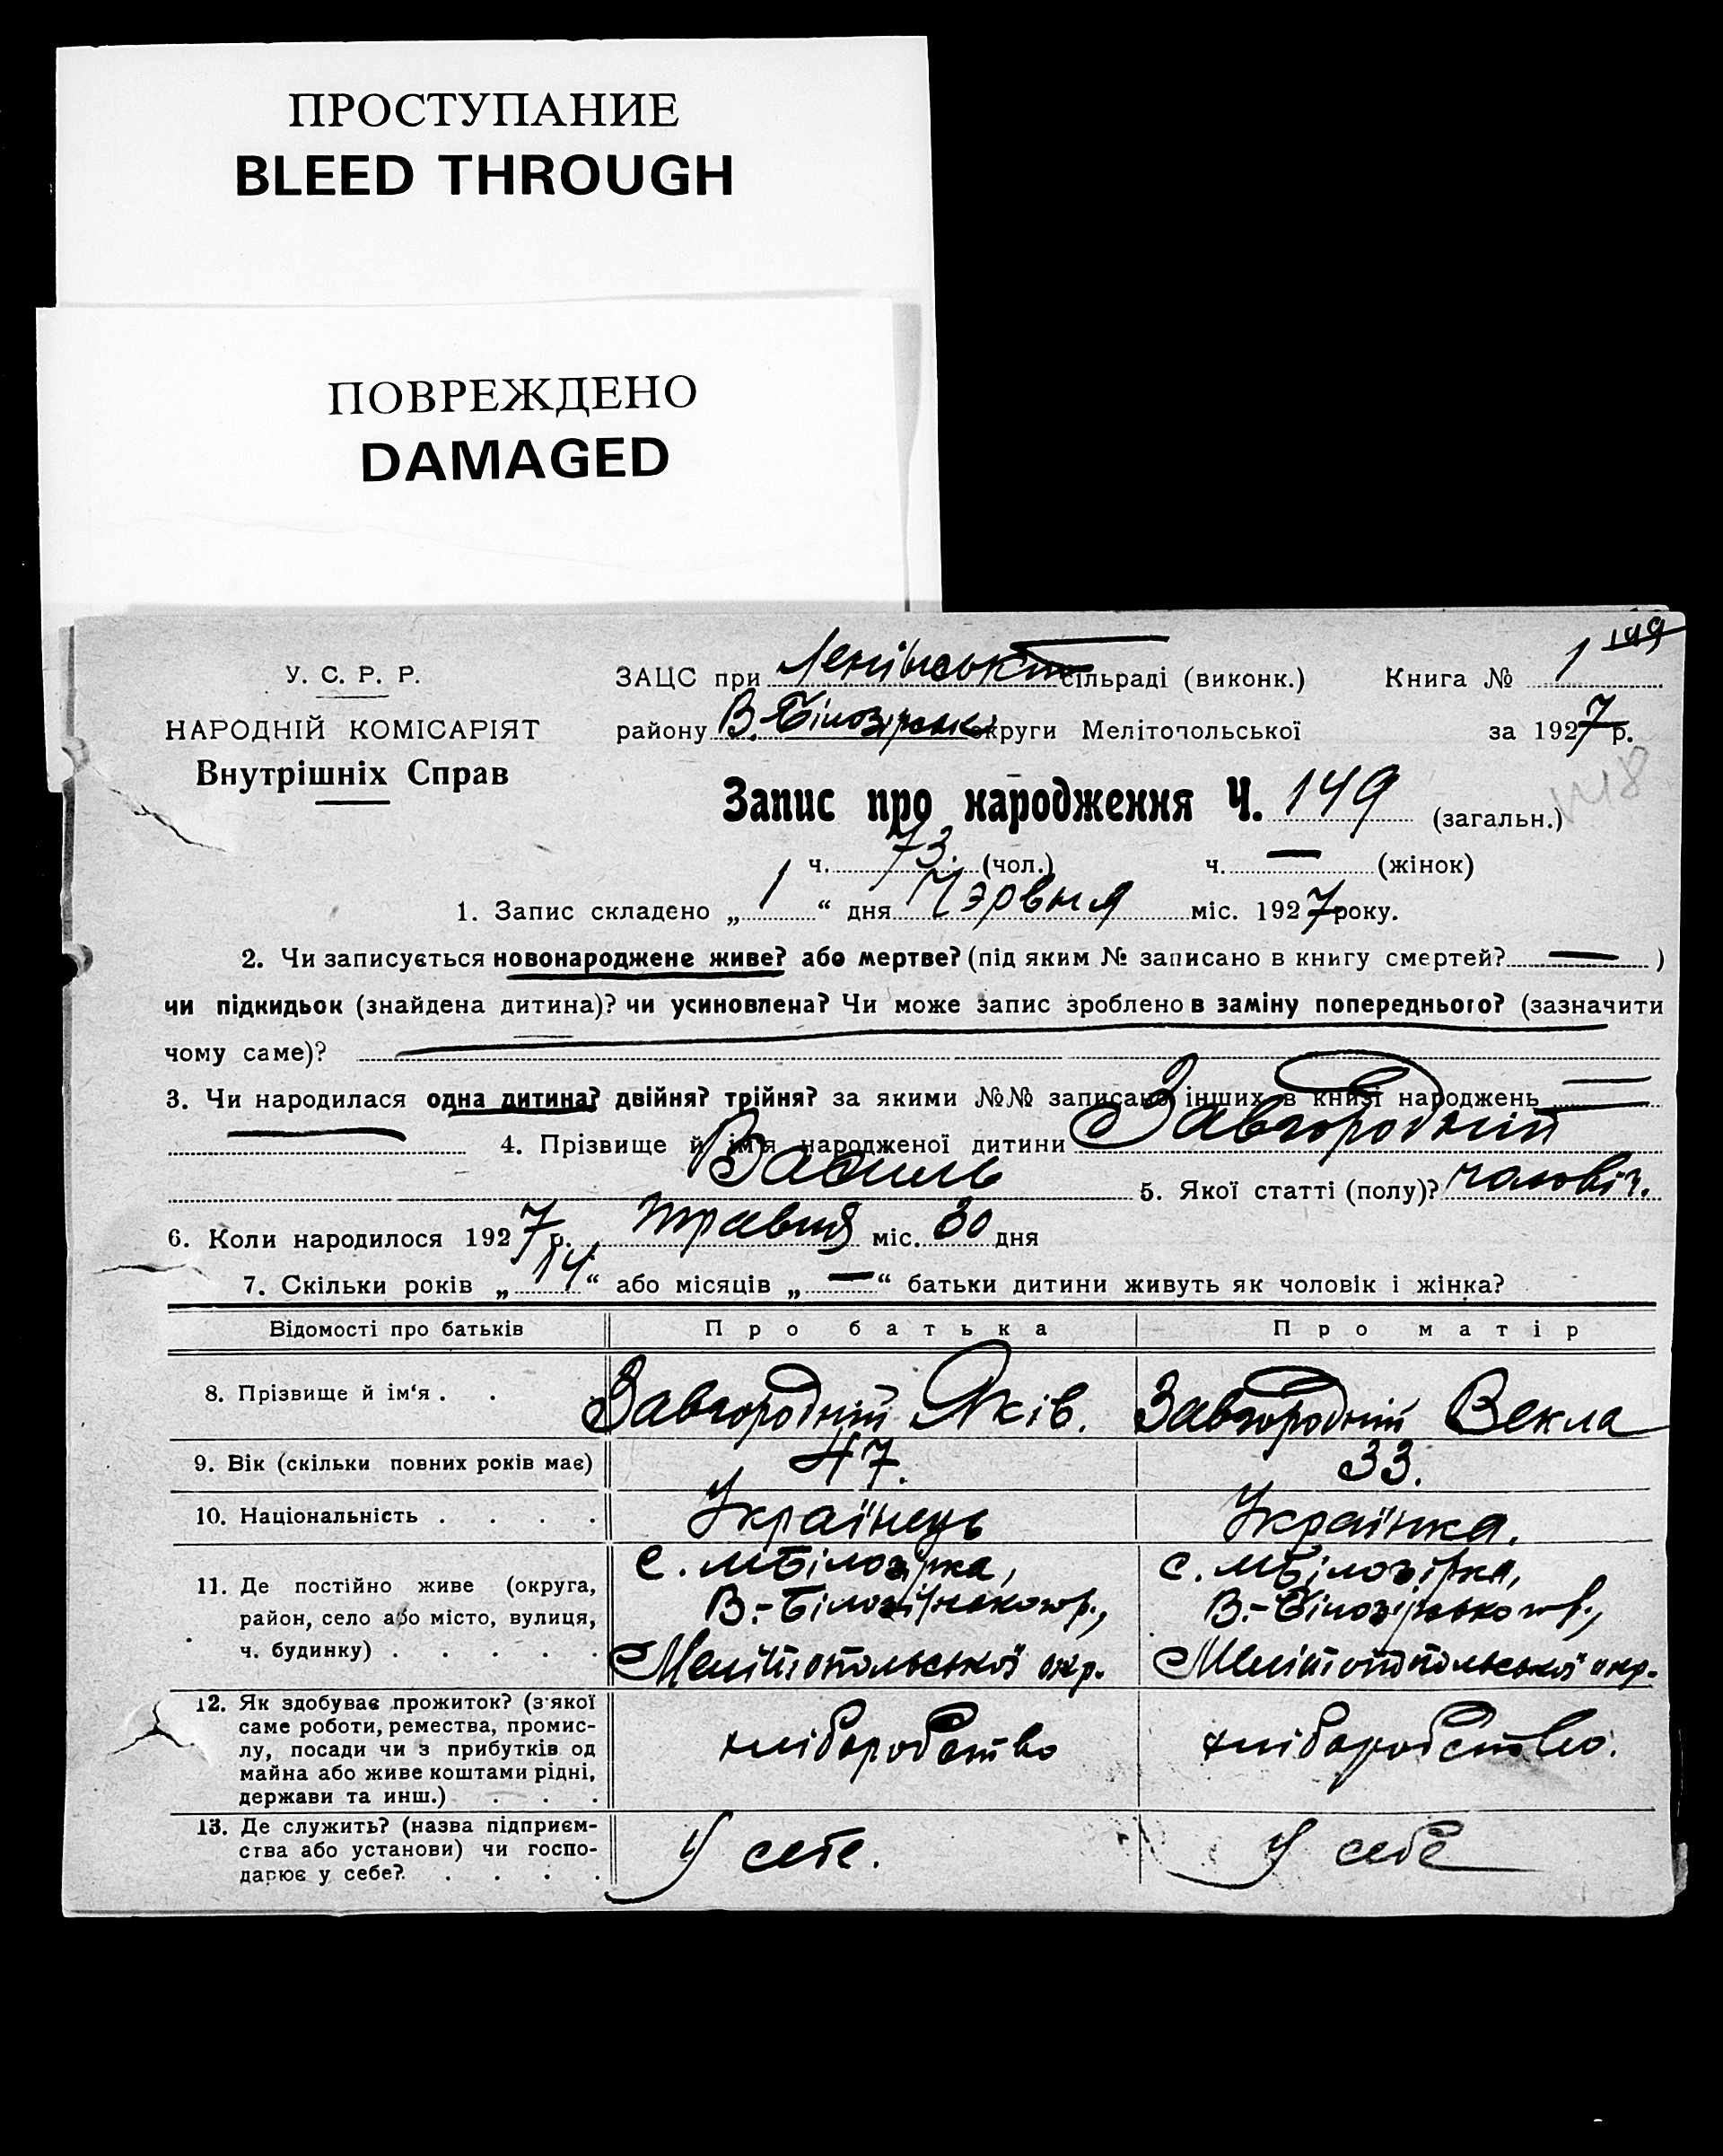 ПРОСТУПАНИЕ
BLEED THROUGH
ПОВРЕЖДЕНО
DAMAGED
149
У. С. Р. Р.
ЗАЦС при Ленінській сільраді (виконк.) Книга № 1
НАРОДНІЙ КОМІСАРІЯТ
району В.-Білозірськ округи Мелітопольської за 1927 р.
Внутрішніх Справ
148
Запис про народження Ч. 149 (загальн.)
ч. 73. (чол.) ч. — (жінок)
1. Запис складено „ 1 “ дня Червня міс. 1927 року.
2. Чи записується новонароджене живе? або мертве? (під яким № записано в книгу смертей? — )
чи підкидьок (знайдена дитина)? чи усиновлена? Чи може запис зроблено в заміну попереднього? (зазначити
чому саме)? —
3. Чи народилася одна дитина? двійня? трійня? за якими №№ записано інших в книзі народжень —
— 4. Прізвище й ім'я народженої дитини Завгородній
Василь 5. Якої статті (полу)? чоловіч.
6. Коли народилося 1927 р. травня міс. 30 дня
7. Скільки років „ 14 “ або місяців „ — “ батьки дитини живуть як чоловік і жінка?
Відомості про батьків Про батька Про матір
8. Прізвище й ім'я . . Завгородній Яків. Завгородній Векла
9. Вік (скільки повних років має) 47. 33.
10. Національність . . . . Українець Українка.
11. Де постійно живе (округа, с. мБілозірка, с. мБілозірка,
район, село або місто, вулиця, В.-Білозірського р., В.-Білозірського р.,
ч. будинку) . . . . . Мелітопольської окр. Мелітопольської окр.
12. Як здобуває прожиток? (з якої
саме роботи, ремества, промис-
лу, посади чи з прибутків од хліборобство хліборобство.
майна або живе коштами рідні,
держави та инш.) . . .
13. Де служить? (назва підприєм-
ства або установи) чи госпо- У себе. У себе
дарює у себе? . . . .